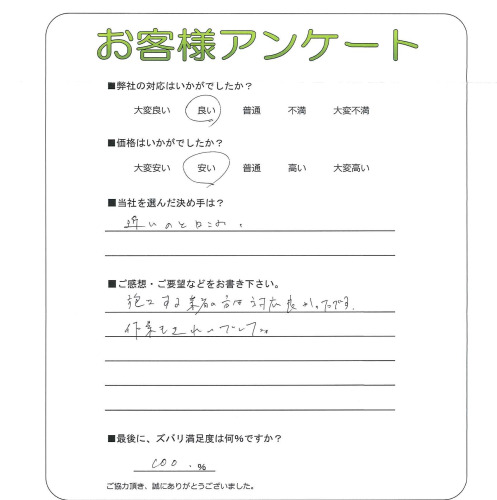 お客様アンケート
■弊社の対応はいかがでしたか？
大変良い 良い 普通 不満 大変不満
■価格はいかがでしたか？
大変安い 安い 普通 高い 大変高い
■当社を選んだ決め手は？
近いのと
■ご感想・ご要望などをお書き下さい。
施工する業者の 対応良かったです。
作業もきれいでした。
■最後に、ズバリ満足度は何％ですか？
100.％
ご協力頂き、誠にありがとうございました。